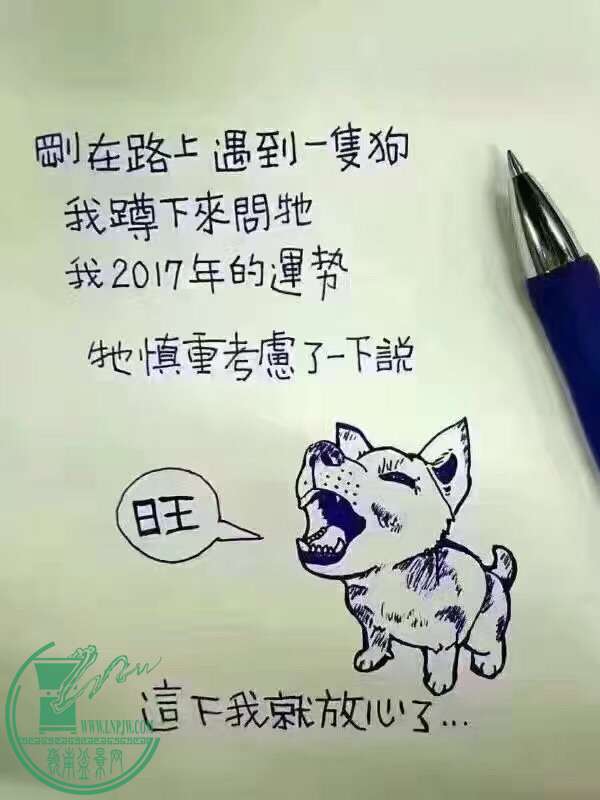 剛在路上遇到一隻狗
我蹲下來問牠
我2017年的運勢
牠慎重考慮了一下說
旺
這下我就放心了...
WWW.LNPJW.COM
嶺南盆景网